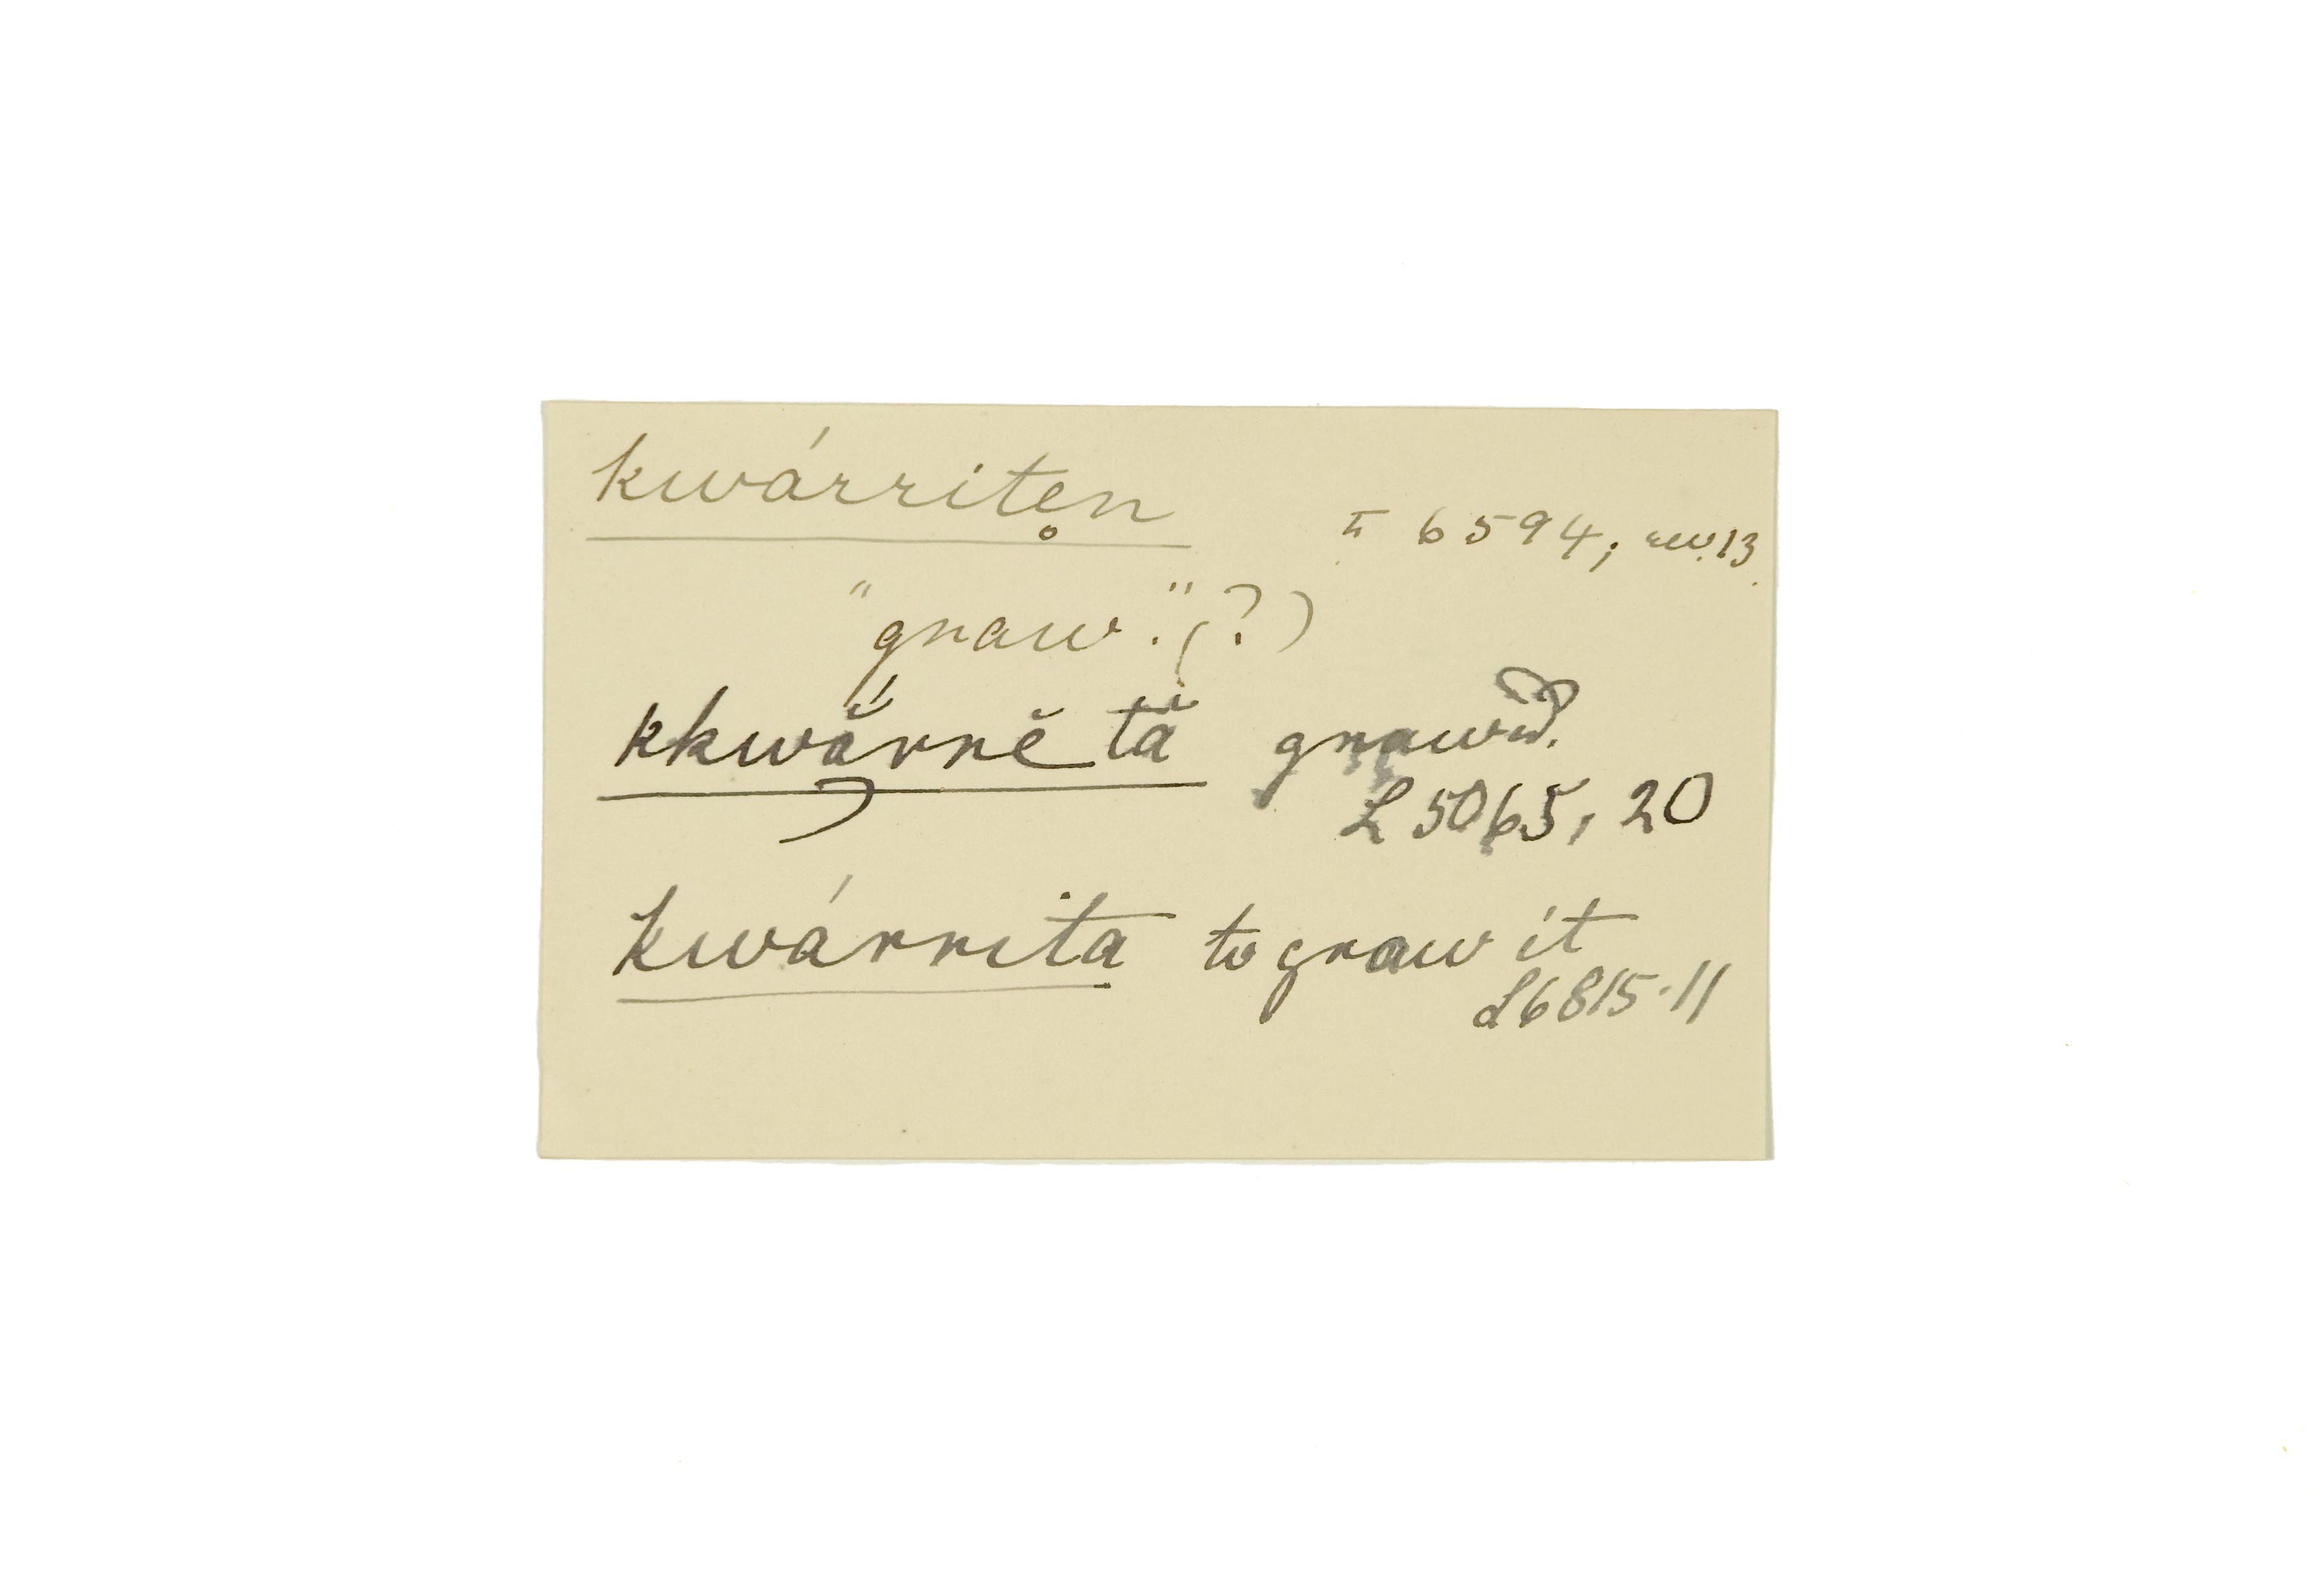 kwárrite̥n
II 6594; rev. 13.
"gnaw." (?)
kkwā̆́rrĕ tă gnaw'd.
L 5065, 20
kwárrita to gnaw it
L6815-11